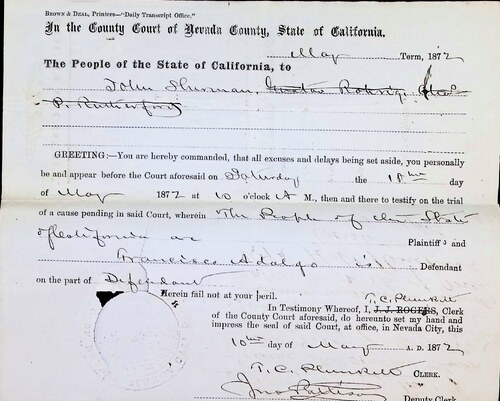 BROWN & DEAL, Printers—"Daily Transcript Office."
In the County Court of Nevada County, State of California.
May Term, 1872
The People of the State of California, to
John Sherman, Gustav Rohrig,
P. Rutherford
GREETING:—You are hereby commanded, that all excuses and delays being set aside, you personally
be and appear before the Court aforesaid on Saturday the 18th day
of May 1872 at 10 o'clock A M., then and there to testify on the trial
of a cause pending in said Court, wherein The People of the State
of California are Plaintiffs and
Francisco Adalgo is Defendant
on the part of Defendant
Herein fail not at your peril.
T. C. Plunkett
In Testimony Whereof, I, J. J. ROGERS, Clerk
of the County Court aforesaid, do hereunto set my hand and
impress the seal of said Court, at office, in Nevada City, this
10th day of May A. D. 1872
T. C. Plunkett CLERK.
Jno Pattison
Deputy Clerk